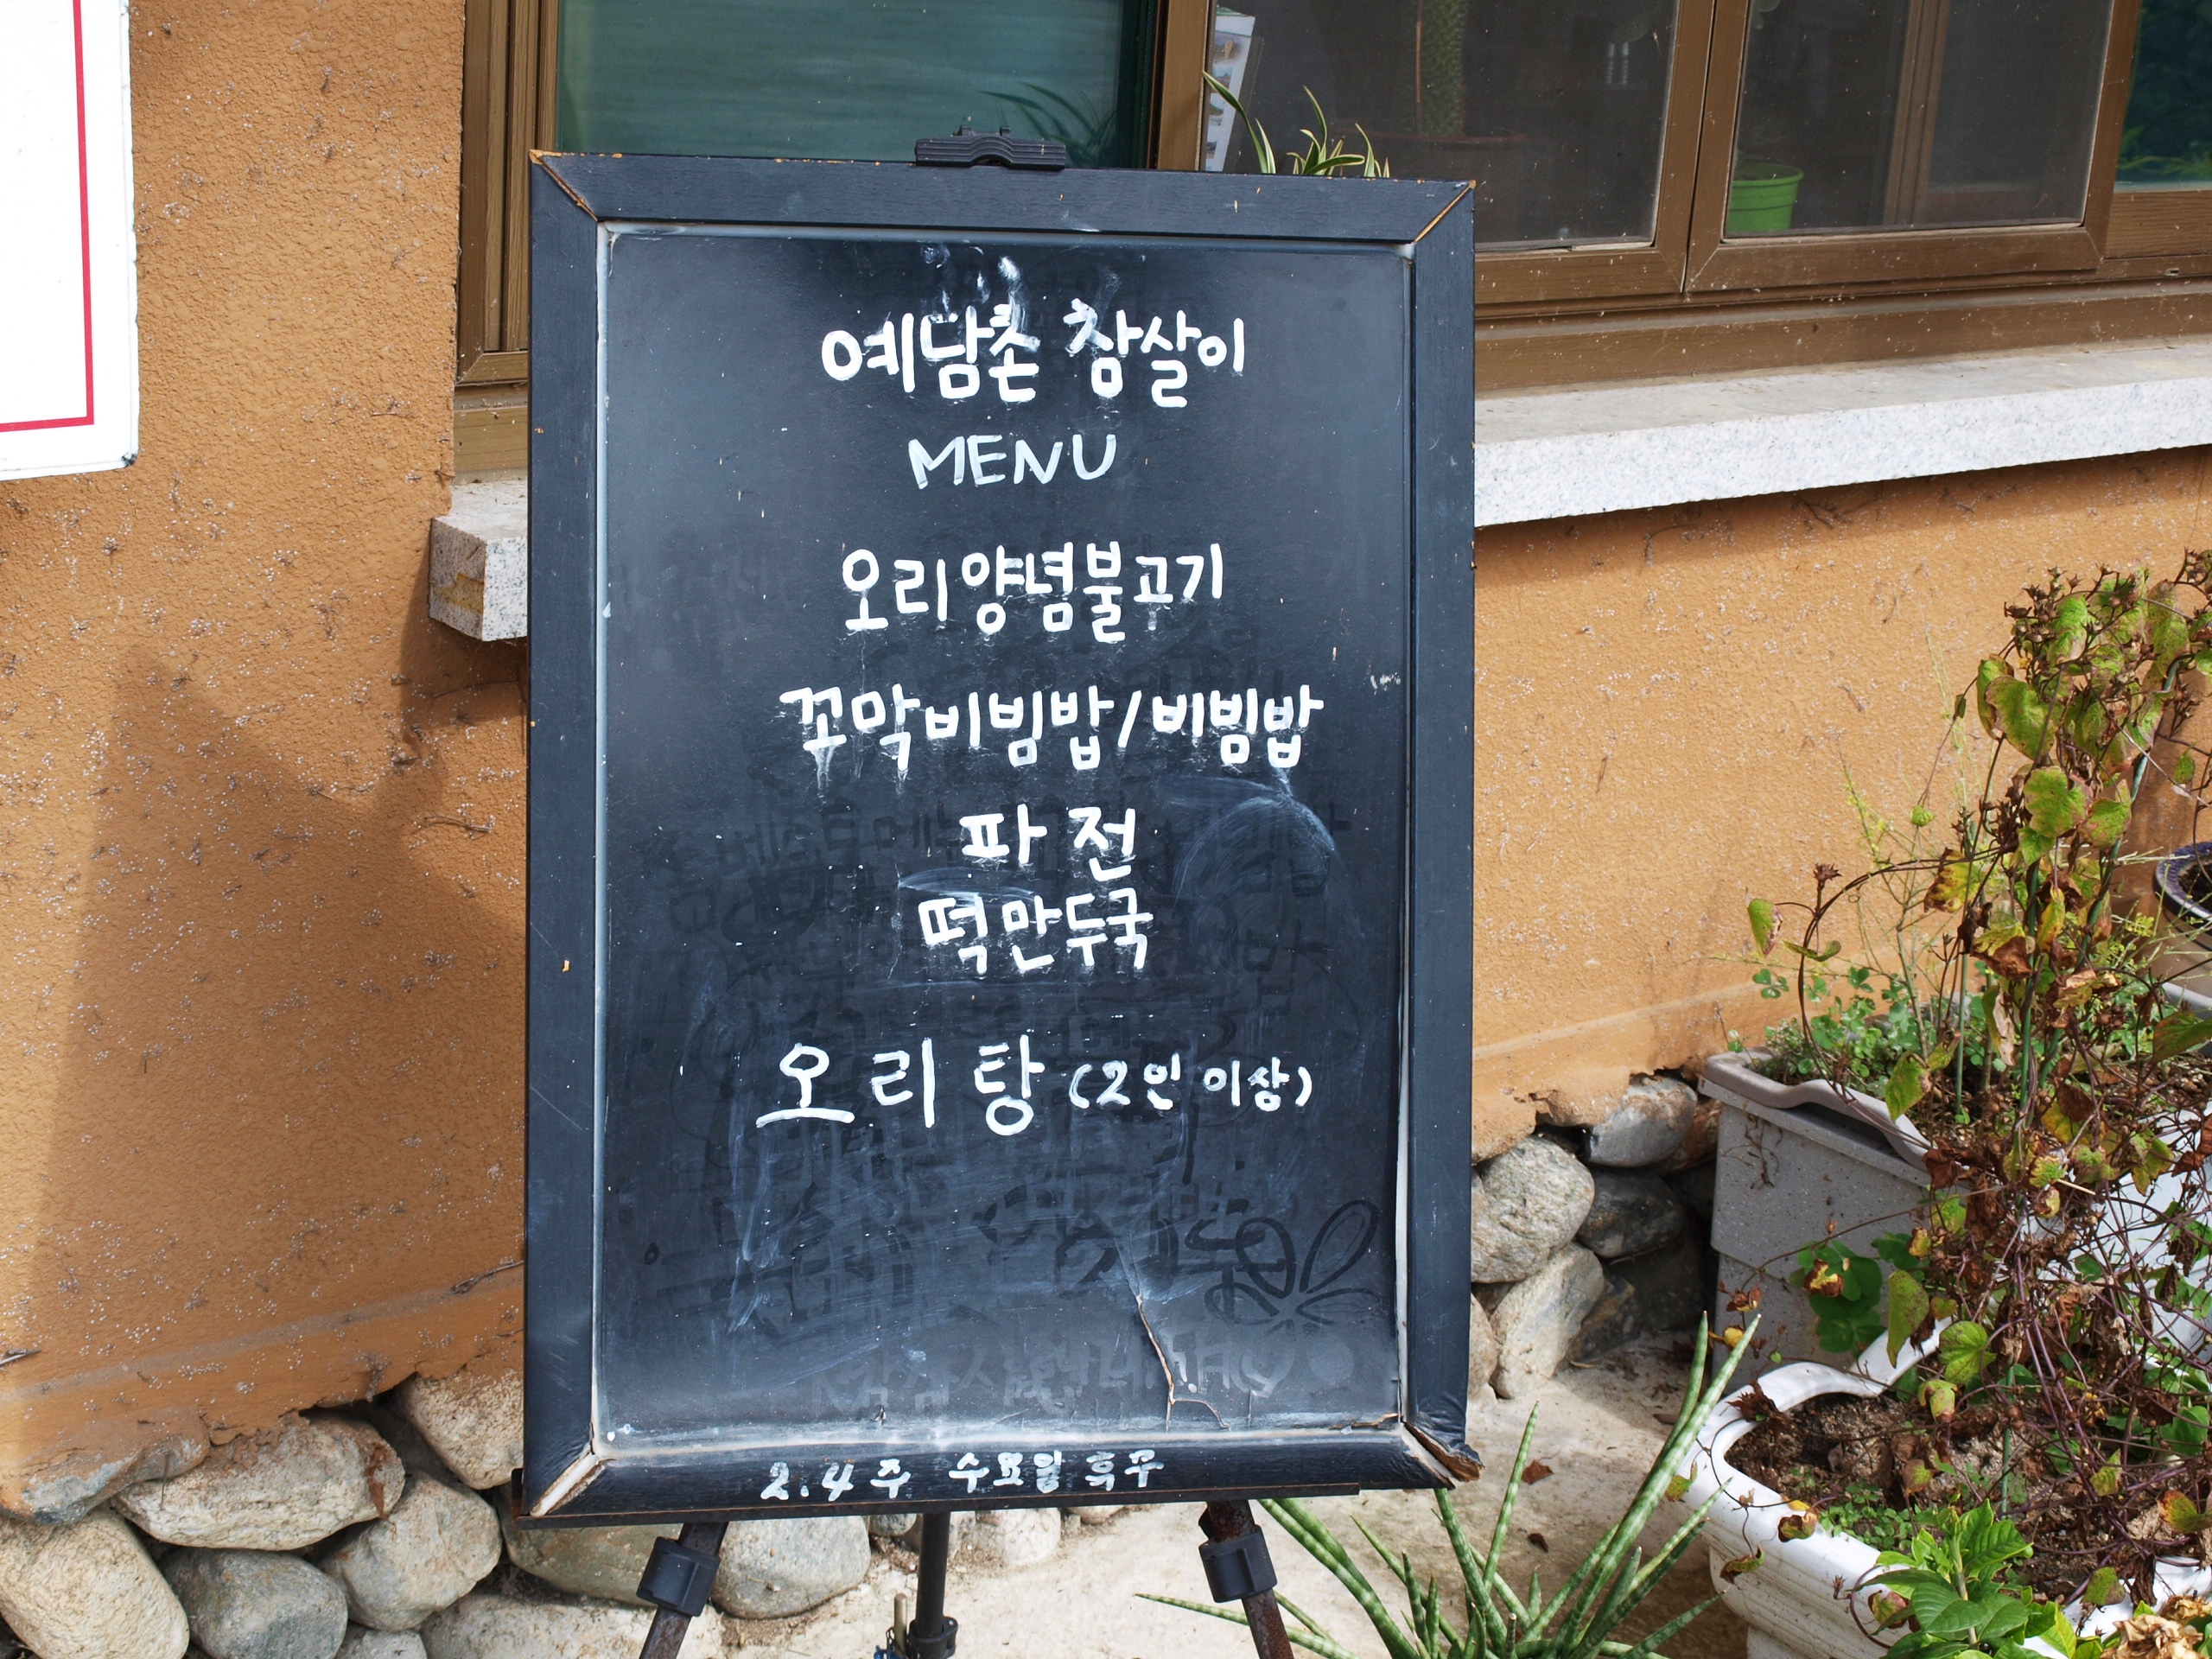 예담촌 참살이
MENU
오리양념불고기
꼬막비빔밥/비빔밥
파전
떡만두국
오리탕 (2인 이상)
2.4주 수요일 휴무